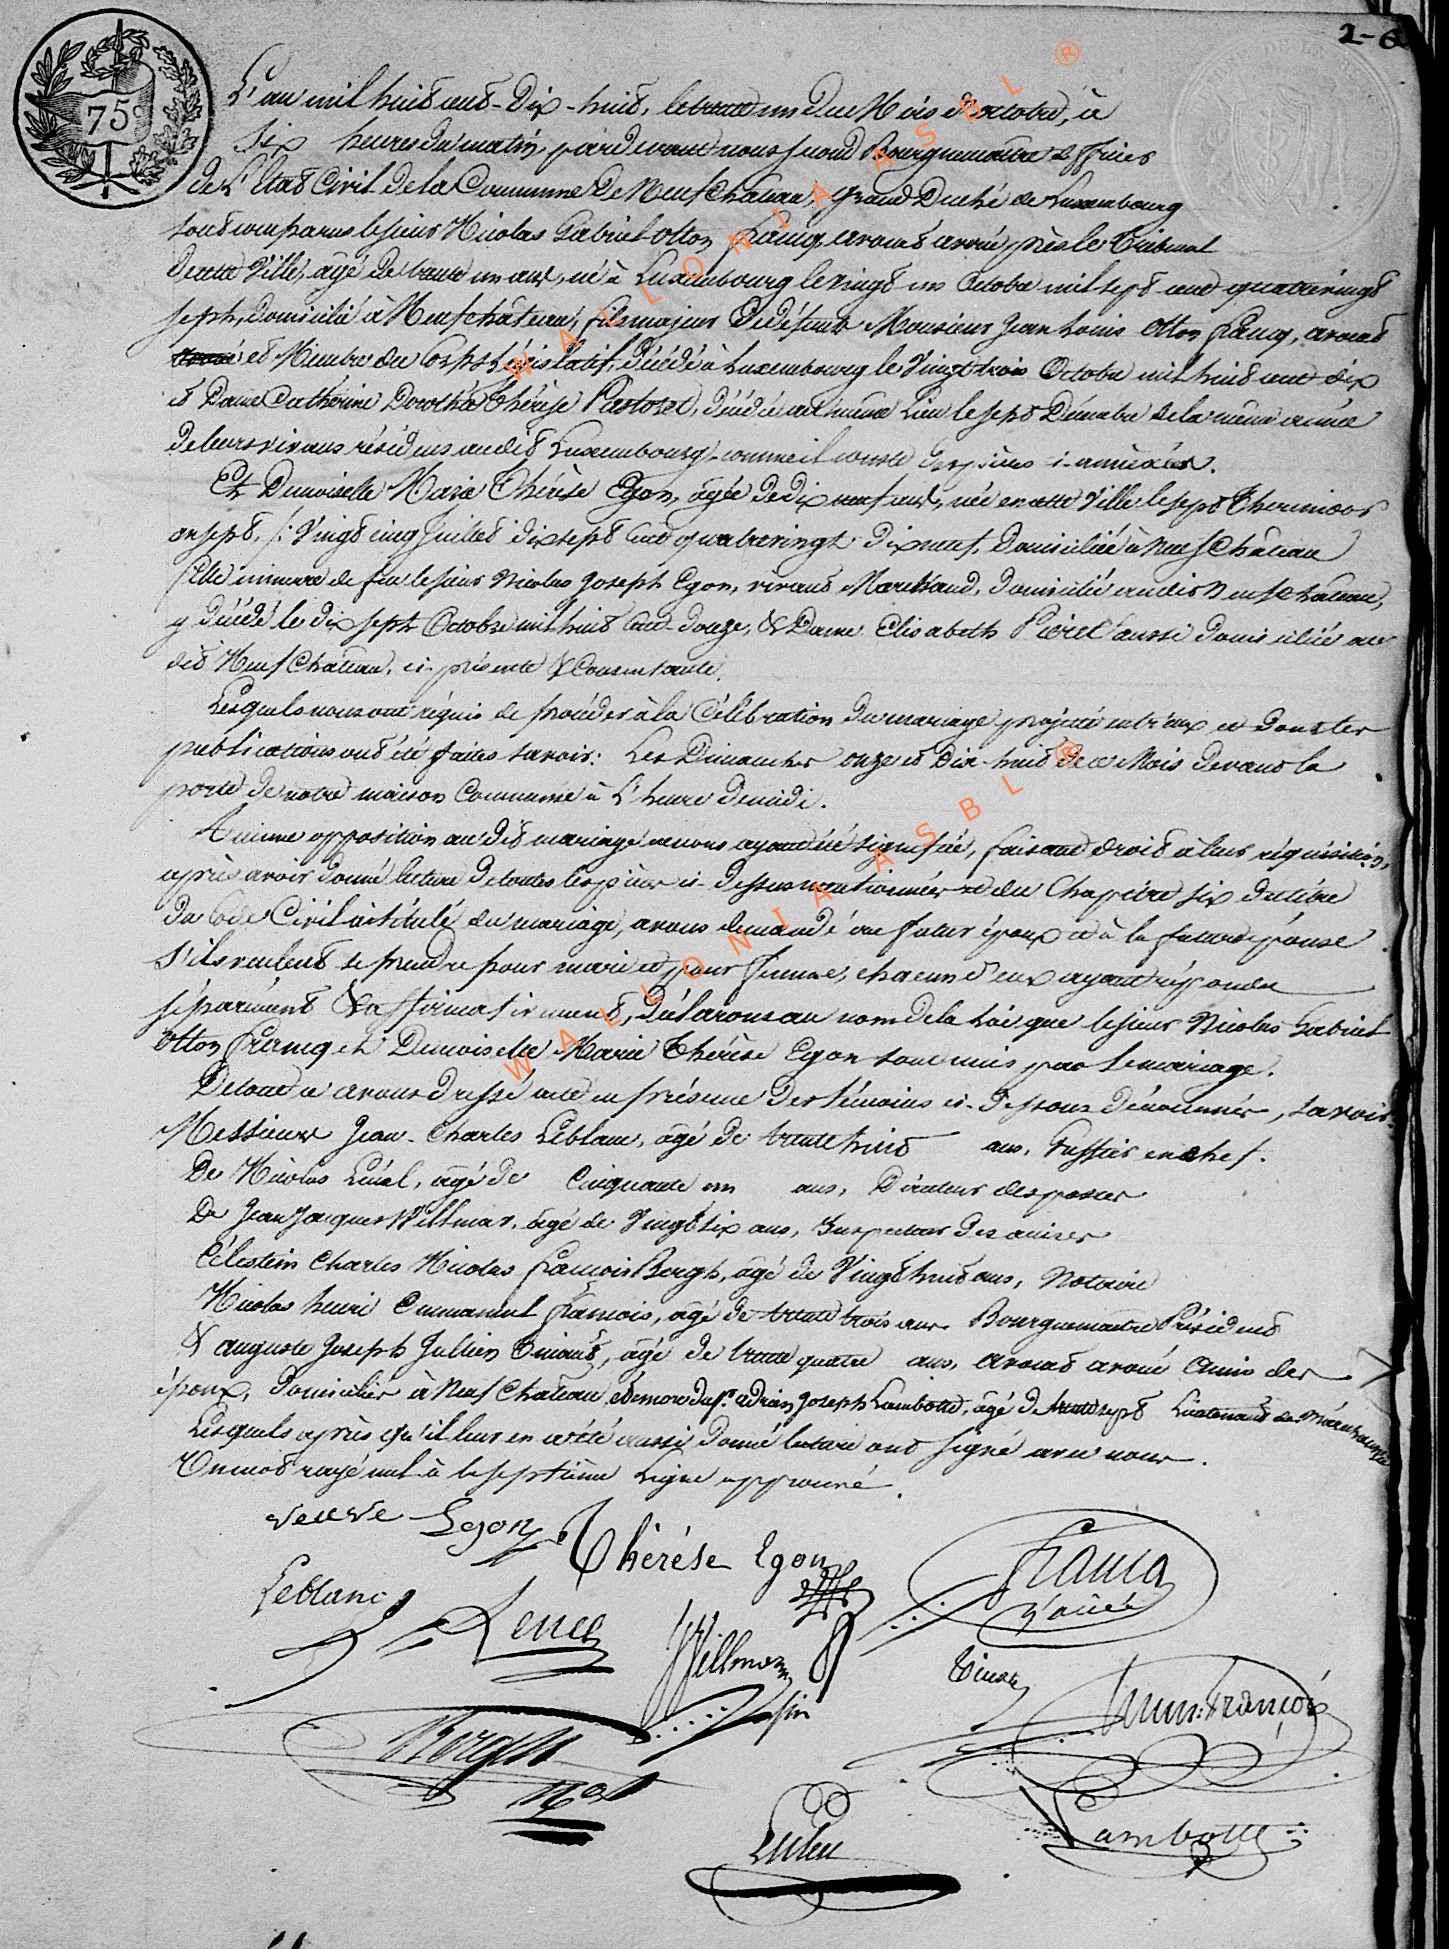 2-6
75
L'an mil huit cent-Dix-huit, le trente un du Mois d'octobre, à
six heures du matin, pardevant nous second Bourguemaitre officier
de L'Etat Civil de la Commune De Neufchateau, Grand Duché de Luxembourg
sont comparus le sieur Nicolas Gabriel otton francq, avocat avoué près le Tribunal
de cette Ville, âgé de trente un ans, né à Luxembourg le vingt un Octobre mil sept cent quatrevingt
sept, domicilié à Neufchâteau, fils majeur de défunt Monsieur Jean Louis Otton francq, avocat
avoué et Membre du Corps Législatif, décédé à Luxembourg le Vingt trois Octobre mil huit cent dix
et Dame Catherine Dorothé Thérèse Pastoret, décédée au même Lieu le sept Décembre de la même année
de leurs vivans résidens audit Luxembourg, comme il conste des pièces ci-annéxées.
Et Demoiselle Marie Thérèse Egon, âgée de dix neuf ans, née en cette Ville le sept Thermidor
an sept, /: Vingt cinq Juillet dix sept cent quatrevingt dix neuf, Domiciliée à Neufchâteau
fille mineure de feu le sieur Nicolas Joseph Egon, vivant Marchand, domicilié audit Neufchateau,
y décédé le dix sept Octobre mil huit cent douze, & Dame Elisabeth Pierret aussi domiciliée au
dit Neufchâteau, ci-présente & Consentante.
Lesquels nous ont réquis de procéder à la Célébration du mariage projetté entr'eux et dont les
publications ont été faites savoir: Les Dimanches onze et Dix-huit de ce Mois devant la
porte de notre maison Commune à L'heure de midi.
Aucune opposition au dit mariage ne nous ayant été signifiée, faisant droit à leur réquisition,
après avoir donné lecture de toutes les pièces ci-dessus mentionnées et du Chapitre six du titre
du Code Civil intitulé du mariage, avons demandé au futur époux et à la future épouse
s'ils veulent se prendre pour mari et pour femme, chacun d'eux ayant répondu
séparément & affirmativement, déclarons au nom de la Loi que le sieur Nicolas Gabriel
Otton francq et Demoiselle Marie Thérèse Egon sont unis par le mariage.
De tout ce avons dressé acte en présence des témoins ci-dessous dénommés, savoir:
Messieurs Jean-Charles Leblanc, âgé de trente huit ans, Greffier en chef.
De Nicolas âgé de Cinquante un ans, Directeur des postes
De Jean Jacques Willmar, âgé de Vingt six ans, Inspecteur des
Célestin Charles Nicolas francois Bergh, âgé de Vingt huit ans, Notaire
Nicolas henri Emmanuel francois, âgé de trente trois ans Bourguemaitre Président
& auguste Joseph Jullien Tinant, âgé de trente quatre ans, avocat avoué Amis des
époux, domiciliés à Neufchâteau, et encore du sr. adrien Joseph Lambotte, âgé de trente sept Lieutenant de Maréchaussée
Lesquels après qu'il leur en a été aussi donné lecture ont signé avec nous.
Un mot rayé nul à la septième Ligne approuvé.
veuve Egon
Thérèse Egon
Francq
Leblanc
JJWillmar
Tinant
Emm: François
Bergh
Lambotte
WALLONIA ASBL ®
WALLONIA ASBL ®